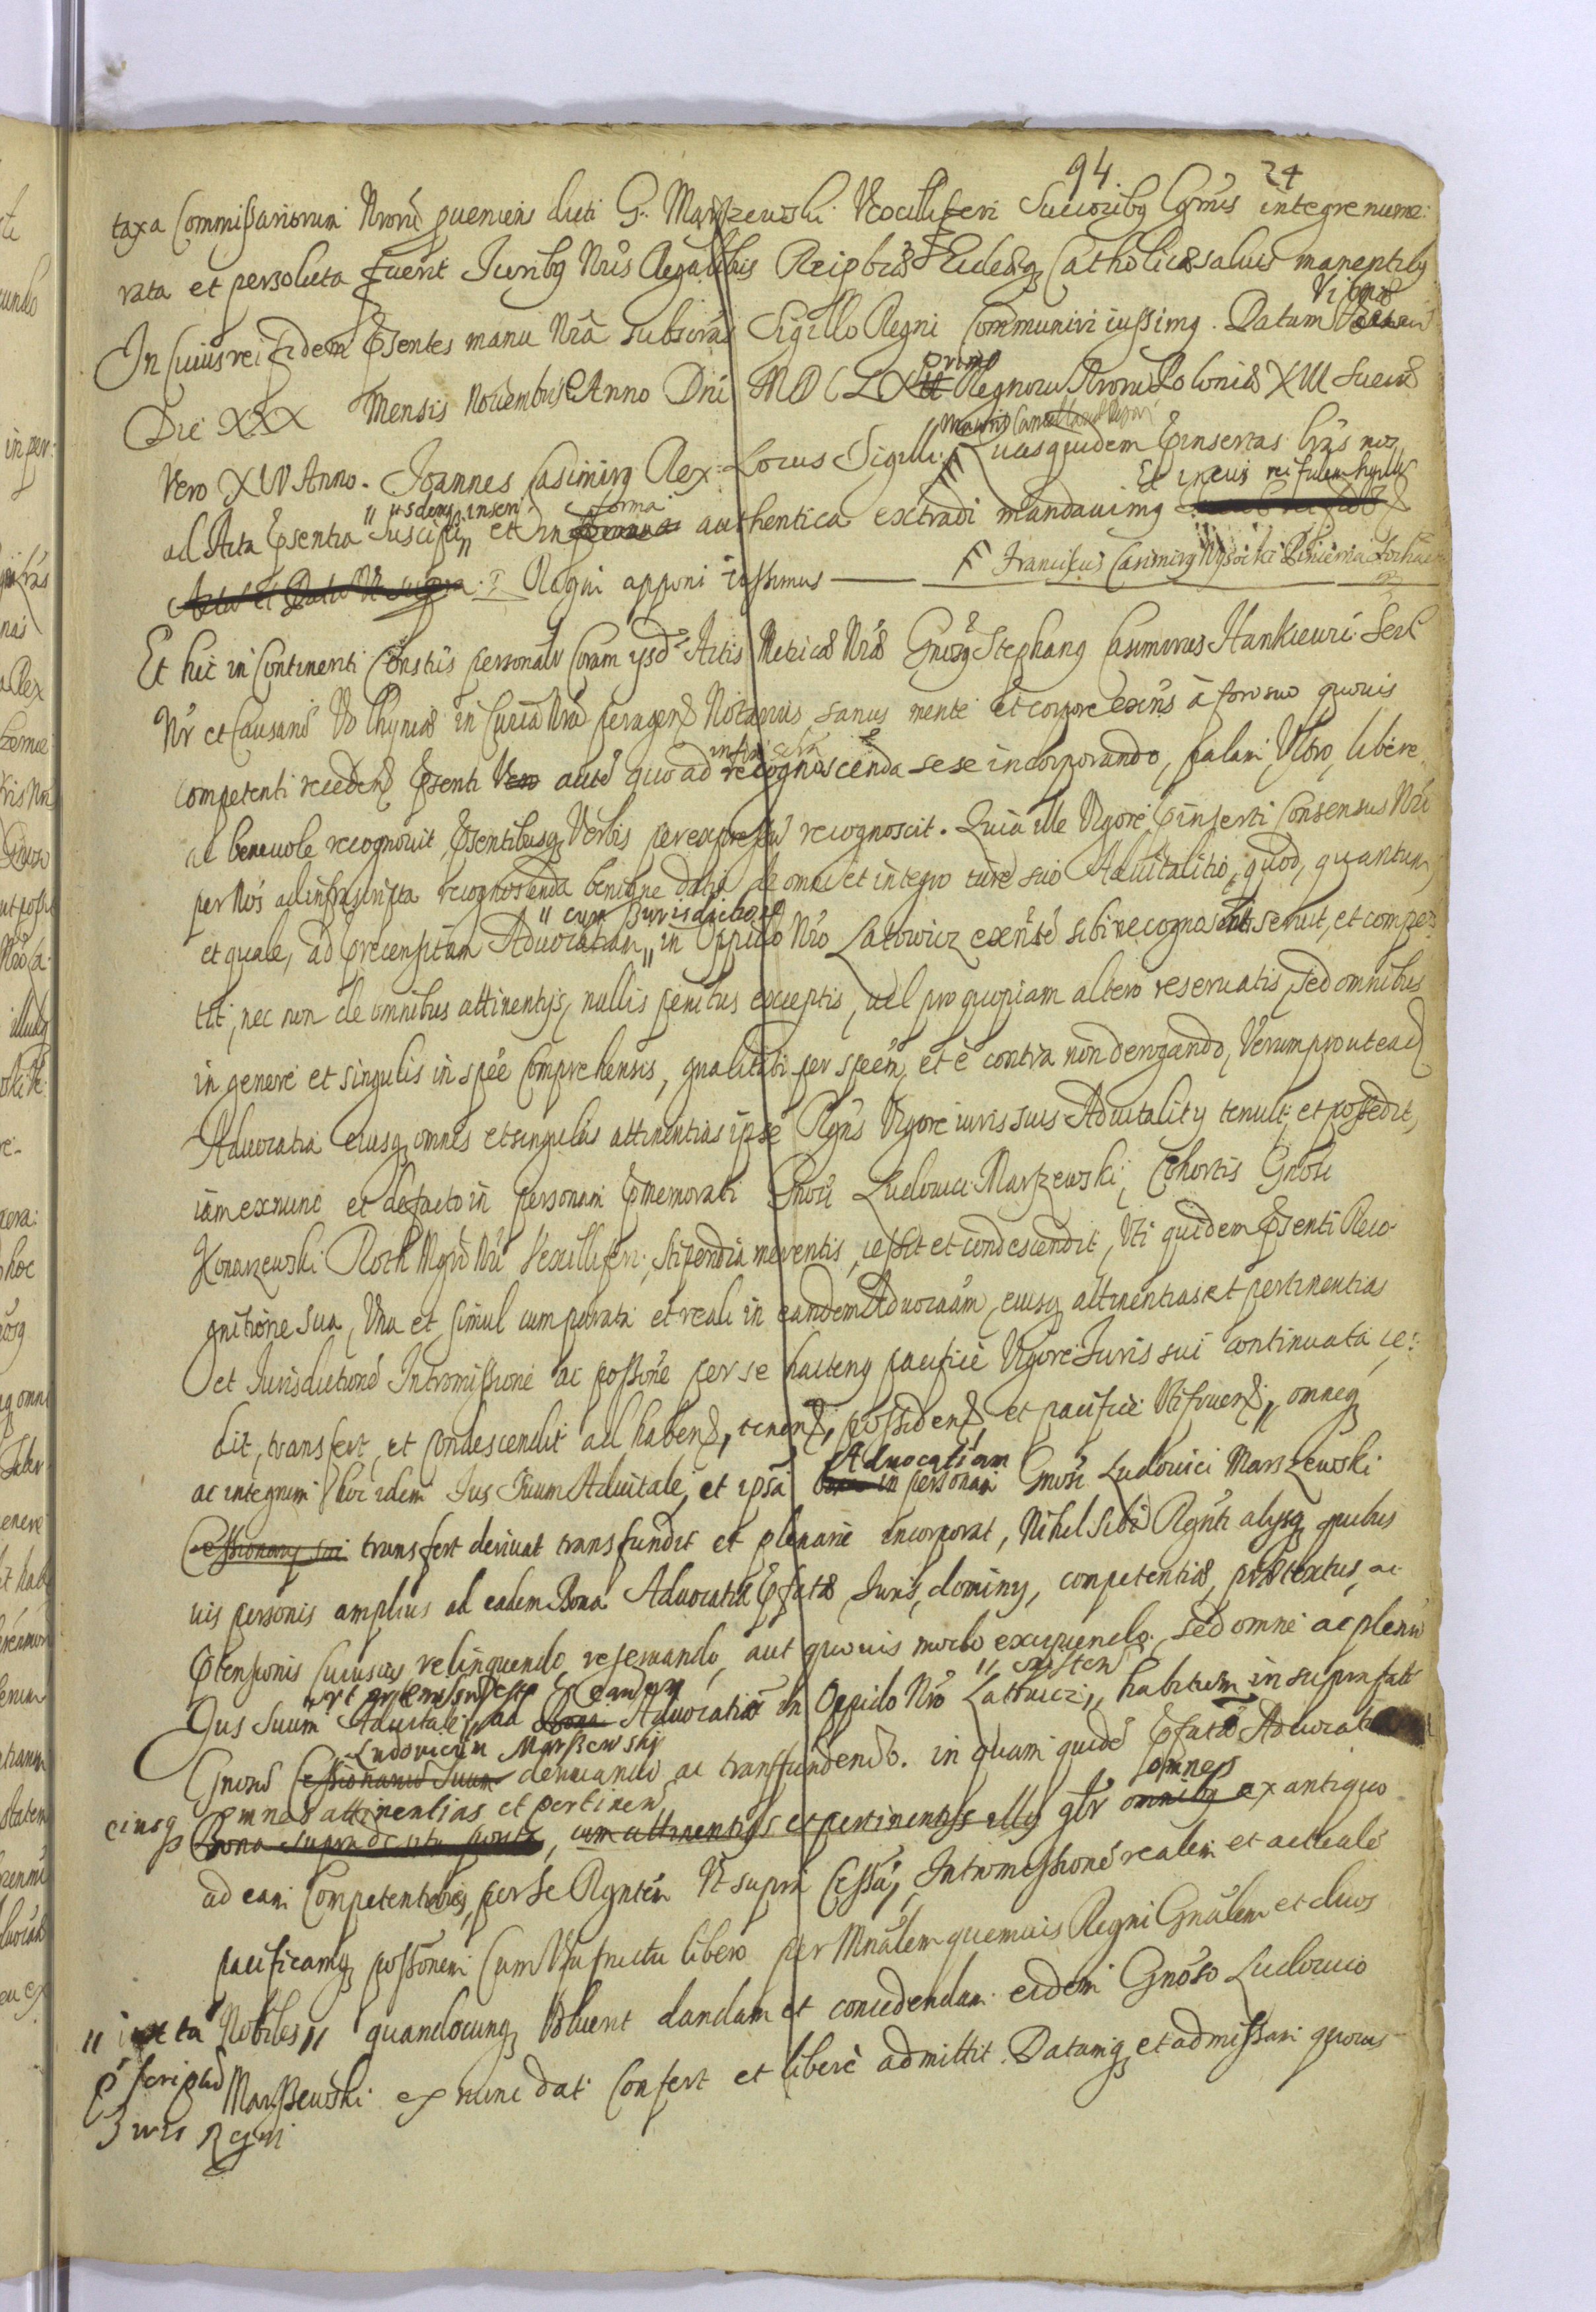 94. 24
taxa Commissariorum Nrorum G. Marszewski Vexilliferi Succoribq integre nume:
rata et persoluta fuerit Juribq Nris Regalibus Reipbcae Ecclaeq Catholicae salvis manentibq
In Cuius rei fidem Psentes manu Nra subscras Sigillo Regni Communiri iussimq. Datum Vilnae
Die XXX Mensis Novembris Anno Dni MDCLX primo Regnoru Nroru Poloniae XIII Sueciae
Vero XIV Anno. Joannes Casimirq Rex. Locus Sigilli. Quas quidem Pinsertas lras nos
ad Acta Psentia suscipi et in forma authentica extradi mandavimq Et in cuius rei fidem Sigillu
Regni apponi iussimus
Franciscus Casimirq Wysocki
Et hic in Continenti Constus personalr Coram ysd Actis Metricae Nrae Gnosq Stephanq Casimirus Hankiewicz Secr
Nr et Causaru Volhyniae in Curia Nra peragen Notarius sanus mente et corpore exens a foro suo quovis
competenti receden Psenti vero aute quo ad infra scta recognoscenda sese incorporando, palam, Vltro, libere
ac benevole recognovit, Psentibusq Verbis per expressu recognoscit. Quia ille Vigore Pinserti Consensus Nri
per Nos ad infrascripta recognoscenda benigne dati, de omni et integro iure suo Advitalitio, quod, quantum,
et quale, ad Precensitam Advocatiam "cum Jurisdictione" in Oppido Nro Latowicz existe sibi recognoscenti servit, et compe:
tit, nec non de omnibus attinentys, nullis penitus exceptis, vel pro quopiam altero reservatis, sed omnibus
in genere et singulis in spee Comprehensis, gnalitati per speem, et e contra non derogando, Verum prout ead
Advocatia eiusq omnes et singulas attinentias ipse Rgns Vigore iuris sui Advitality tenuit, et possedit,
iam ex nunc et de facto in personam Pmemorati Gnosi Ludovici Marszewski, Cohortis Gnosi
Konarzewski Roth Mgri Nri Vexilliferi, stipendia merentis, cessit et condescendit, Vti quidem Psenti Reco-
gnitione sua, Vna et simul cum parata et reali in eandem Advocaam, eiusq attinentias et pertinentias
et Jurisdictione Intromissione ac possione per se hactenq pacifice Vigore Juris sui continuata ce:
dit, transfert, et Condescendit ad haben, tenen, possiden, et pacifice Vtifruen, omneq
ac integrum hoc idem Jus Suum Advitale, et ipsa Advocatiam in personam Gnosi Ludovici Marszewski
Cessionary sui transfert derivat transfundit et plenarie incorporat, Nihil Sibi Rgnti alysq quibus
vis personis amplius ad eadem Bona Advocatia Pfatae Juris, dominy, competentiae, praetextus, ac
Ptensionis Cuiusvis relinquendo, reservando, aut quovis modo excipiendo. sed omne ac plenu
Jus Suum Advitale, ad Bona Advocatiae in Oppido Nro Latowicz, habitum in supra fatu
Gnosu Cessionariu Suum Ludovicum Marszewski derivando ac transfundendo. in quam quide Pfata Advocatiam
eiusq omnes attinentias et pertinen, cum attinentys et pertinentys illy omnes omnibq ex antiquo
ad eam Competentibus, per Se Rgntem Vt supra Cessa, Intromissione realem et actuale
pacificamq possionem Cum Vsufructu libero per Mnalem quemvis Regni Gnalem et duos
Nobiles "iuxta Pscriptu Juris Regni" quandocunq Voluerit dandam et concedendam eidem Gnoso Ludovico
Marszewski ex nunc dat Confert et libere admittit. Datamq et admissam